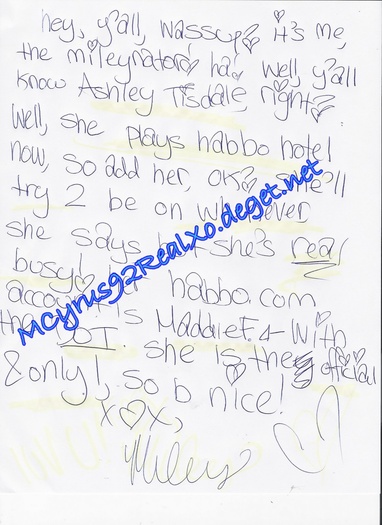 hey, y'all, wassup? it's me,
the mileynator! ha! well, y'all
know Ashley Tisdale, right?
well, she plays habbo hotel
now, so add her, ok? she'll
try 2 be on whenever
she says she's real
busy! habbo.com
account is MaddieF.4- with
the DOT. she is the official
& only!, so b nice!
x♡x,
Miley
MCyrus92RealXo.deget.net